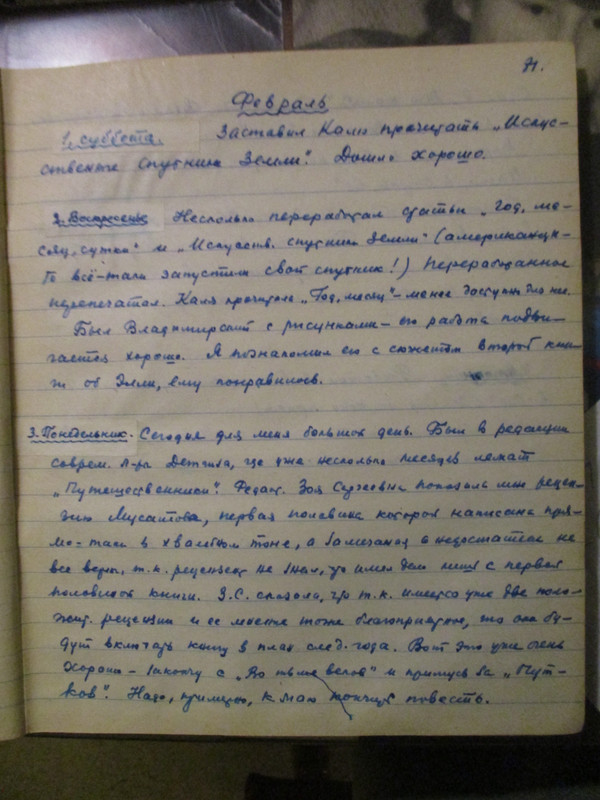 71.
Февраль
1. суббота. Заставил Калю прочитать „Искус-
ственные спутники Земли“. Дошло хорошо.
2. Воскресенье Несколько переработал статьи „Год, ме-
сяц, сутки“ и „Искусств. спутники Земли“ (американцы-
то всё-таки запустили свой спутник!) Переработанное
перепечатал. Каля прочитала „Год, месяц“ – менее доступно для нее.
Был Владимирский с рисунками – его работа подви-
гается хорошо. Я познакомил его с сюжетом второй кни-
ги об Элли, ему понравилось.
3. Понедельник. Сегодня для меня большой день. Был в редакции
соврем. л-ры Детгиза, где уже несколько месяцев лежат
„Путешественники“. Редакт. Зоя Сергеевна показала мне рецен-
зию Мусатова, первая половина которой написана пря-
мо-таки в хвалебном тоне, а замечания о недостатках не
все верны, т.к. рецензент не знал, что имел дело лишь с первой
половиной книги. З.С. сказала, что т.к. имеется уже две поло-
жит. рецензии и ее мнение тоже благоприятное, то они бу-
дут включать книгу в план след. года. Вот это уже очень
хорошо – закончу с „Во тьме веков“ и примусь за „Пут-
ков“. Надо, к маю кончить повесть.